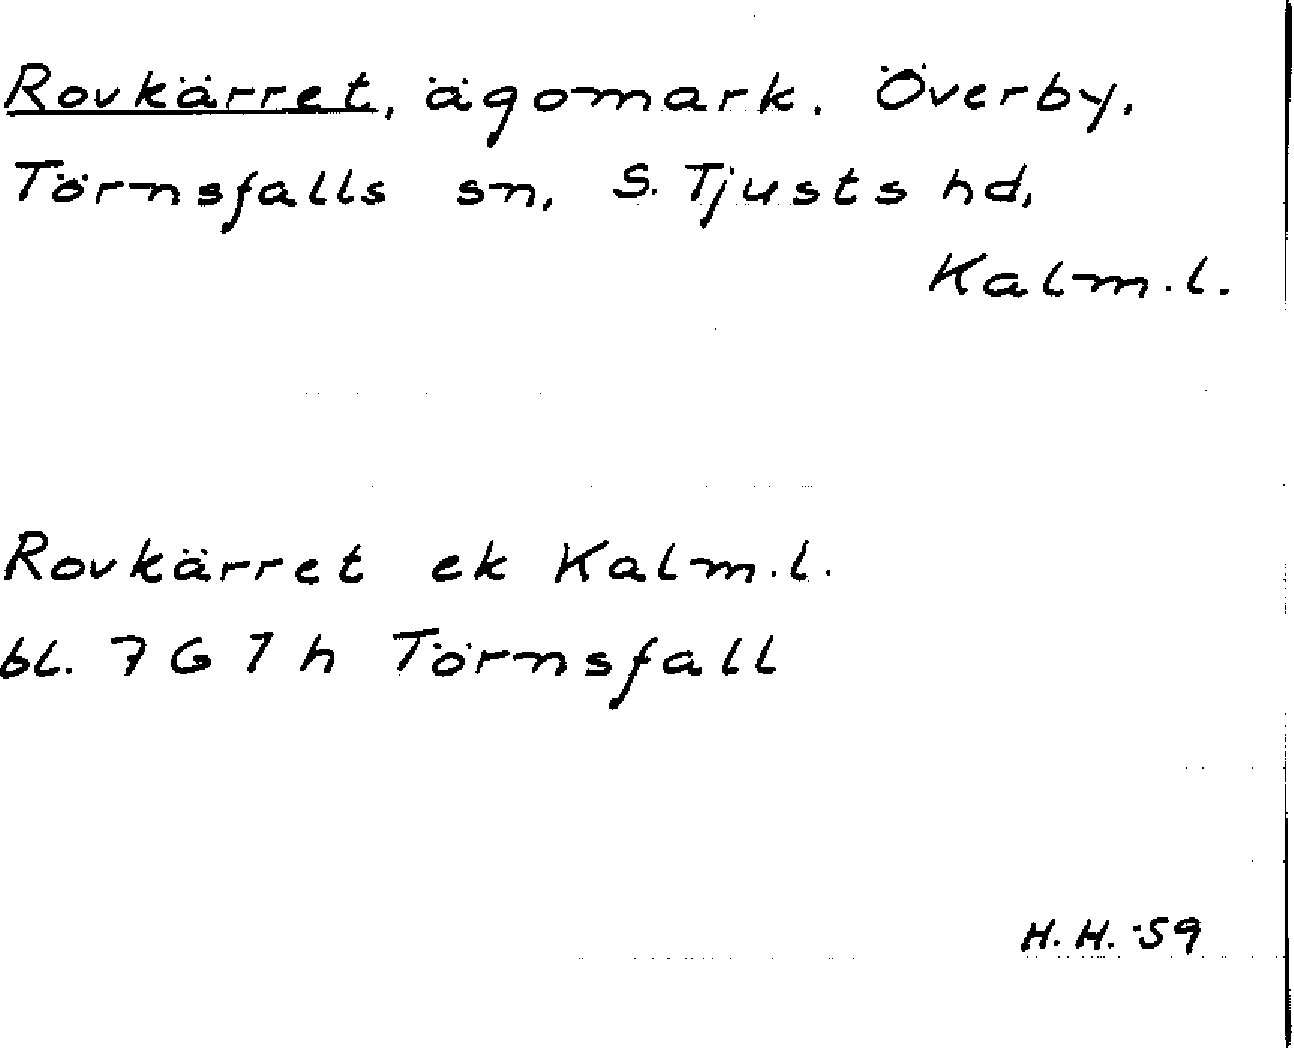 Rovkärret, ägomark. Överby,
Törnsfalls sn, S. Tjusts hd,
Kalm.l.
Rovkärret ek Kalm.l.
bl. 7 G 1 h Törnsfall
H. H. -59